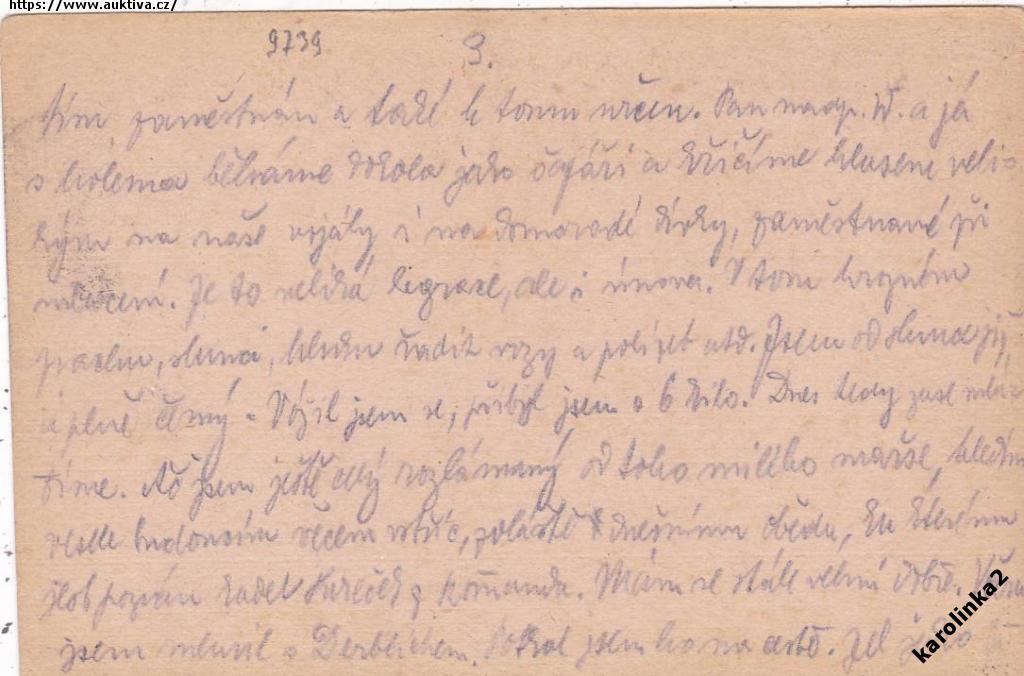 https://www.auktiva.cz/
9739 3.
tím zaměstnán a také k tomu určen. Pan nadp. W. a já
s holema běháme dokola jako a křičíme hlasem veli-
kým na naše vojáky i na domorodé dívky, zaměstnané při
mlácení. Je to veliká legrace, ale i únava. V tom hrozném
prachu, slunci, hluku řadit vozy a polízet atd. Jsem od slunce již
úplně černý. Vážil jsem se, přibyl jsem o 6 kilo. Dnes tedy zase mlá-
tíme. Ač jsem ještě celý rozlámaný od toho milého marše, hledím
vesele budoucím věcem vstříc, zvláště k dnešnímu obědu, ku kterému
jest pozván kadet z komanda. Mám se stále velmi dobře. Včera
jsem mluvil s Derblichem. Potkal jsem ho na cestě. Jel
karolinka2